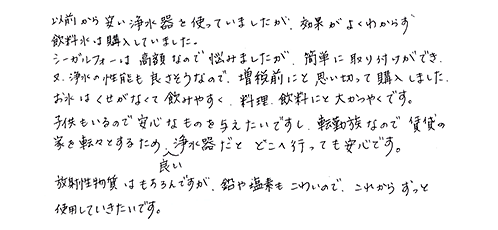 以前から安い浄水器を使っていましたが、効果がよくわからず
飲料水は購入していました。
シーガルフォーは高額なので悩みましたが、簡単に取り付けができ、
又、浄水の性能も良さそうなので、増税前にと思い切って購入しました。
お水はくせがなくて飲みやすく、料理、飲料にと大かつやくです。
子供もいるので安心なものを与えたいですし、転勤族なので賃貸の
家を転々とするため、良い浄水器だと どこへ行っても安心です。
放射性物質はもちろんですが、鉛や塩素もこわいので、これからずっと
使用していきたいです。